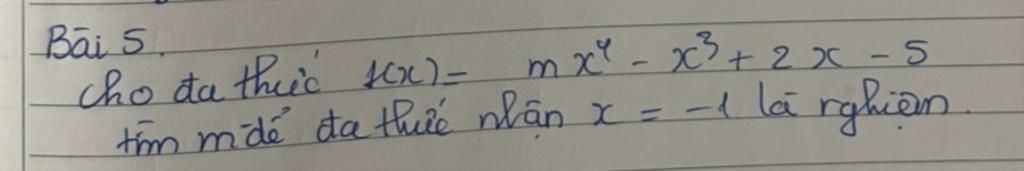 Bài 5.
Cho đa thức f(x) = mx⁴ - x³ + 2x - 5
tìm m để đa thức nhận x = -1 là nghiệm.